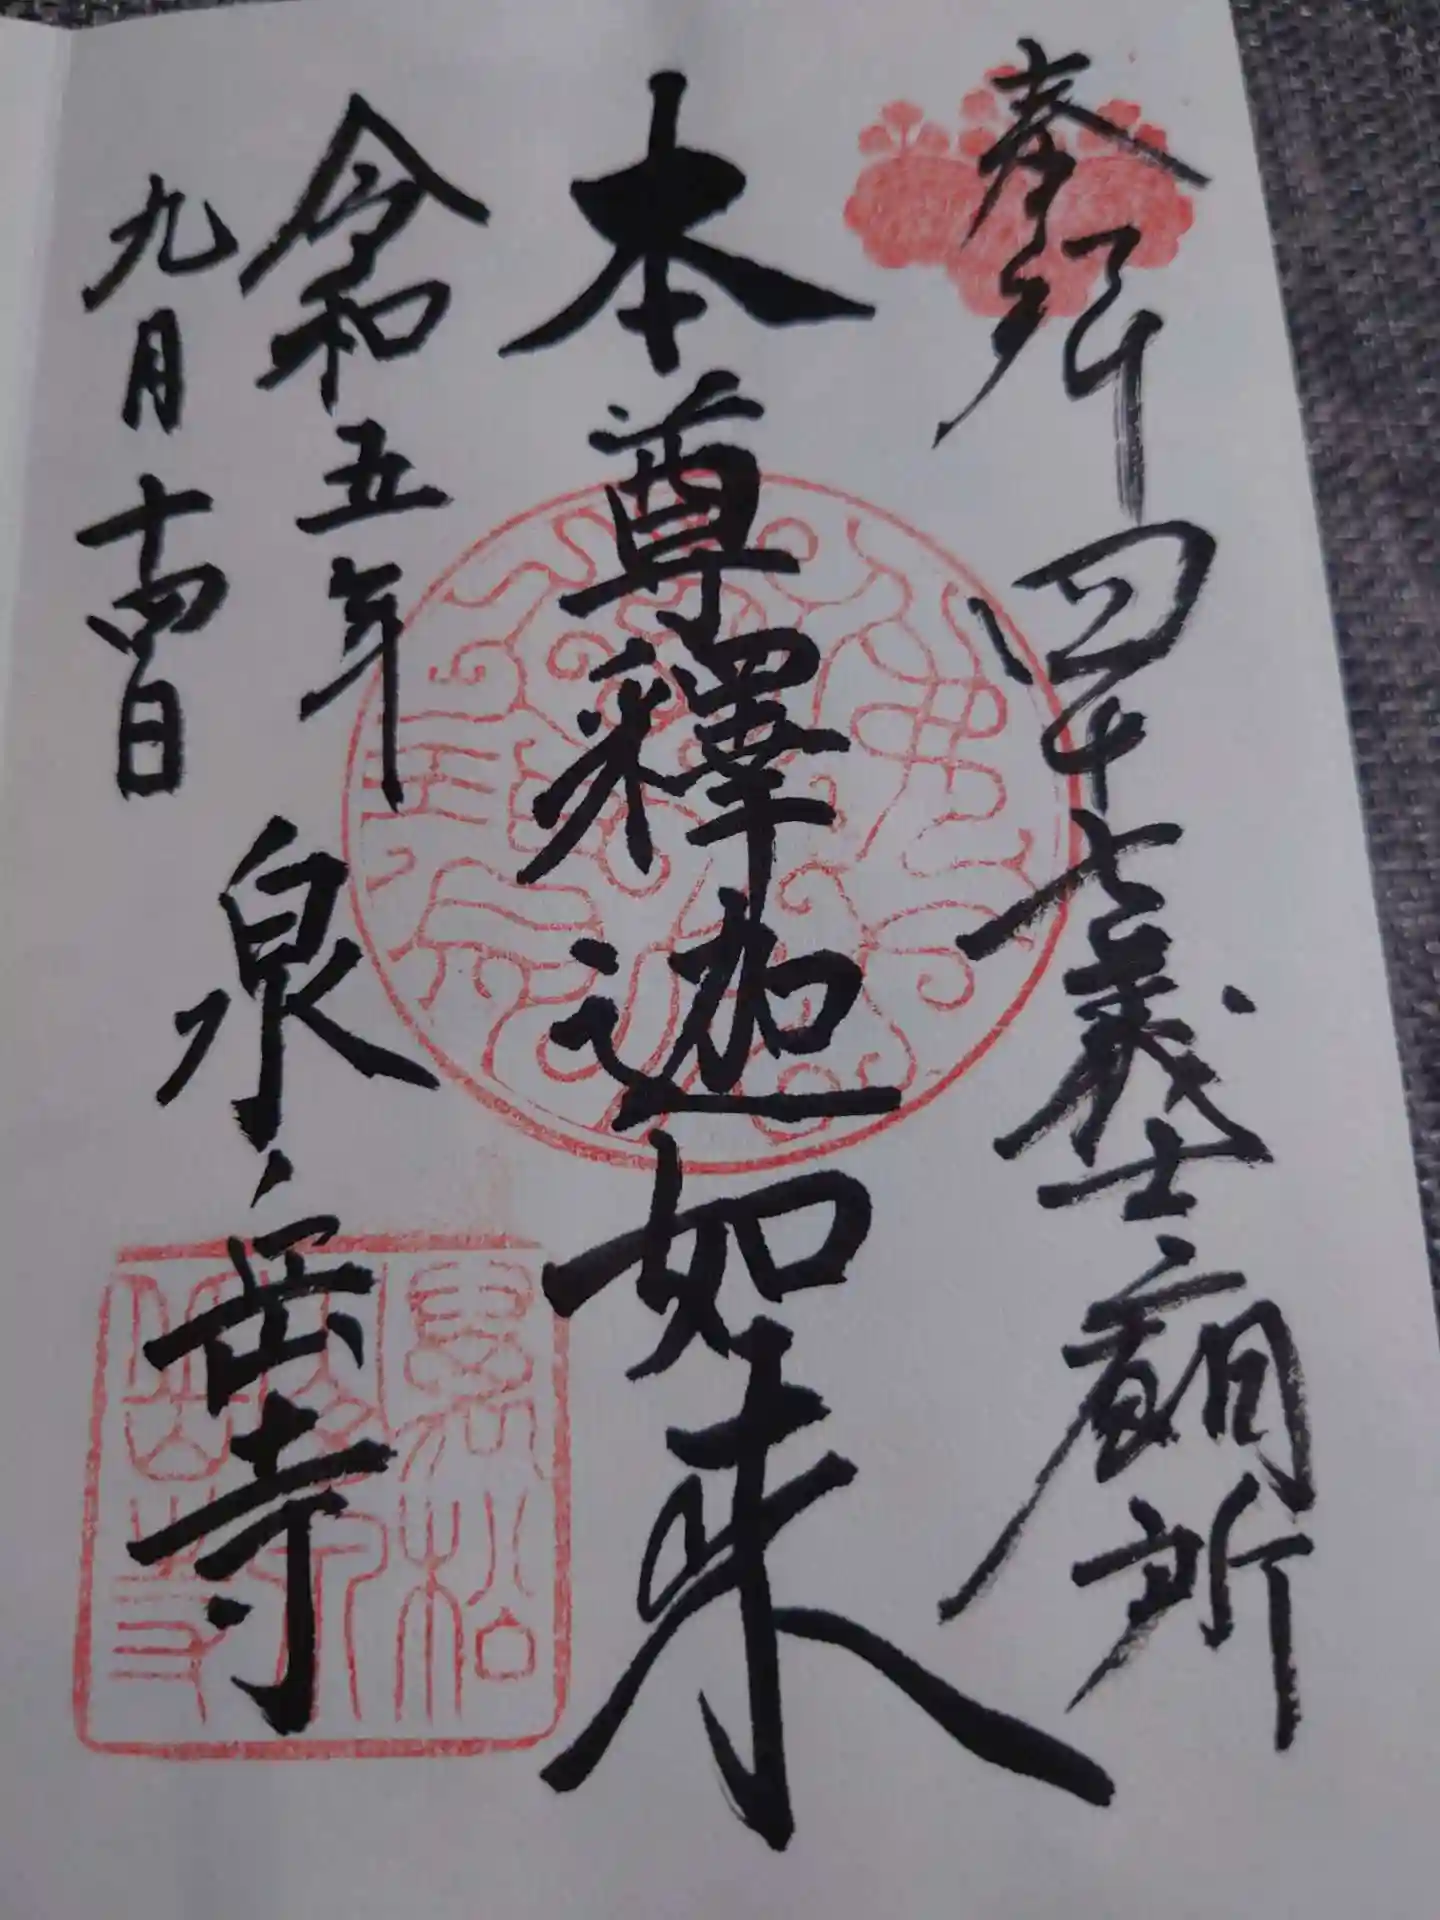 奉拝 四十七義士廟所
本尊釋迦如来
令和五年
九月十四日
泉岳寺
萬松
泉岳寺